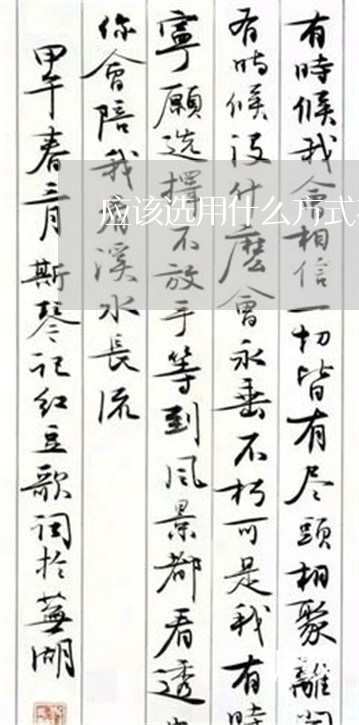 有時候我会相信一切皆有尽頭相聚離
有時候没什麽會永垂不朽可是我有時
寧願选擇不放手等到风景都看透
你會陪我看溪水長流
甲午春三月斯琴记红豆歌词於蕪湖
应该选用什么方式